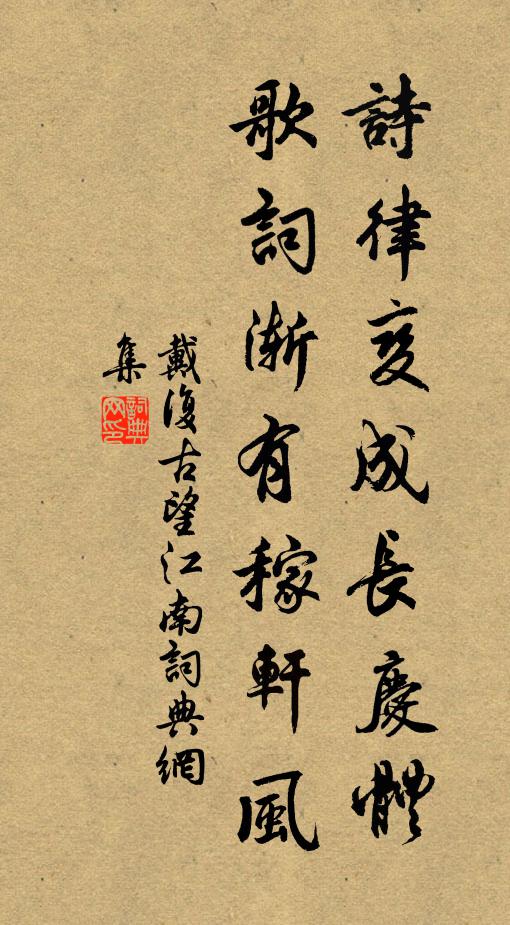 詩律變成長慶體
歌詞漸有稼軒風
戴復古望江南詞典網
集
詞典网印